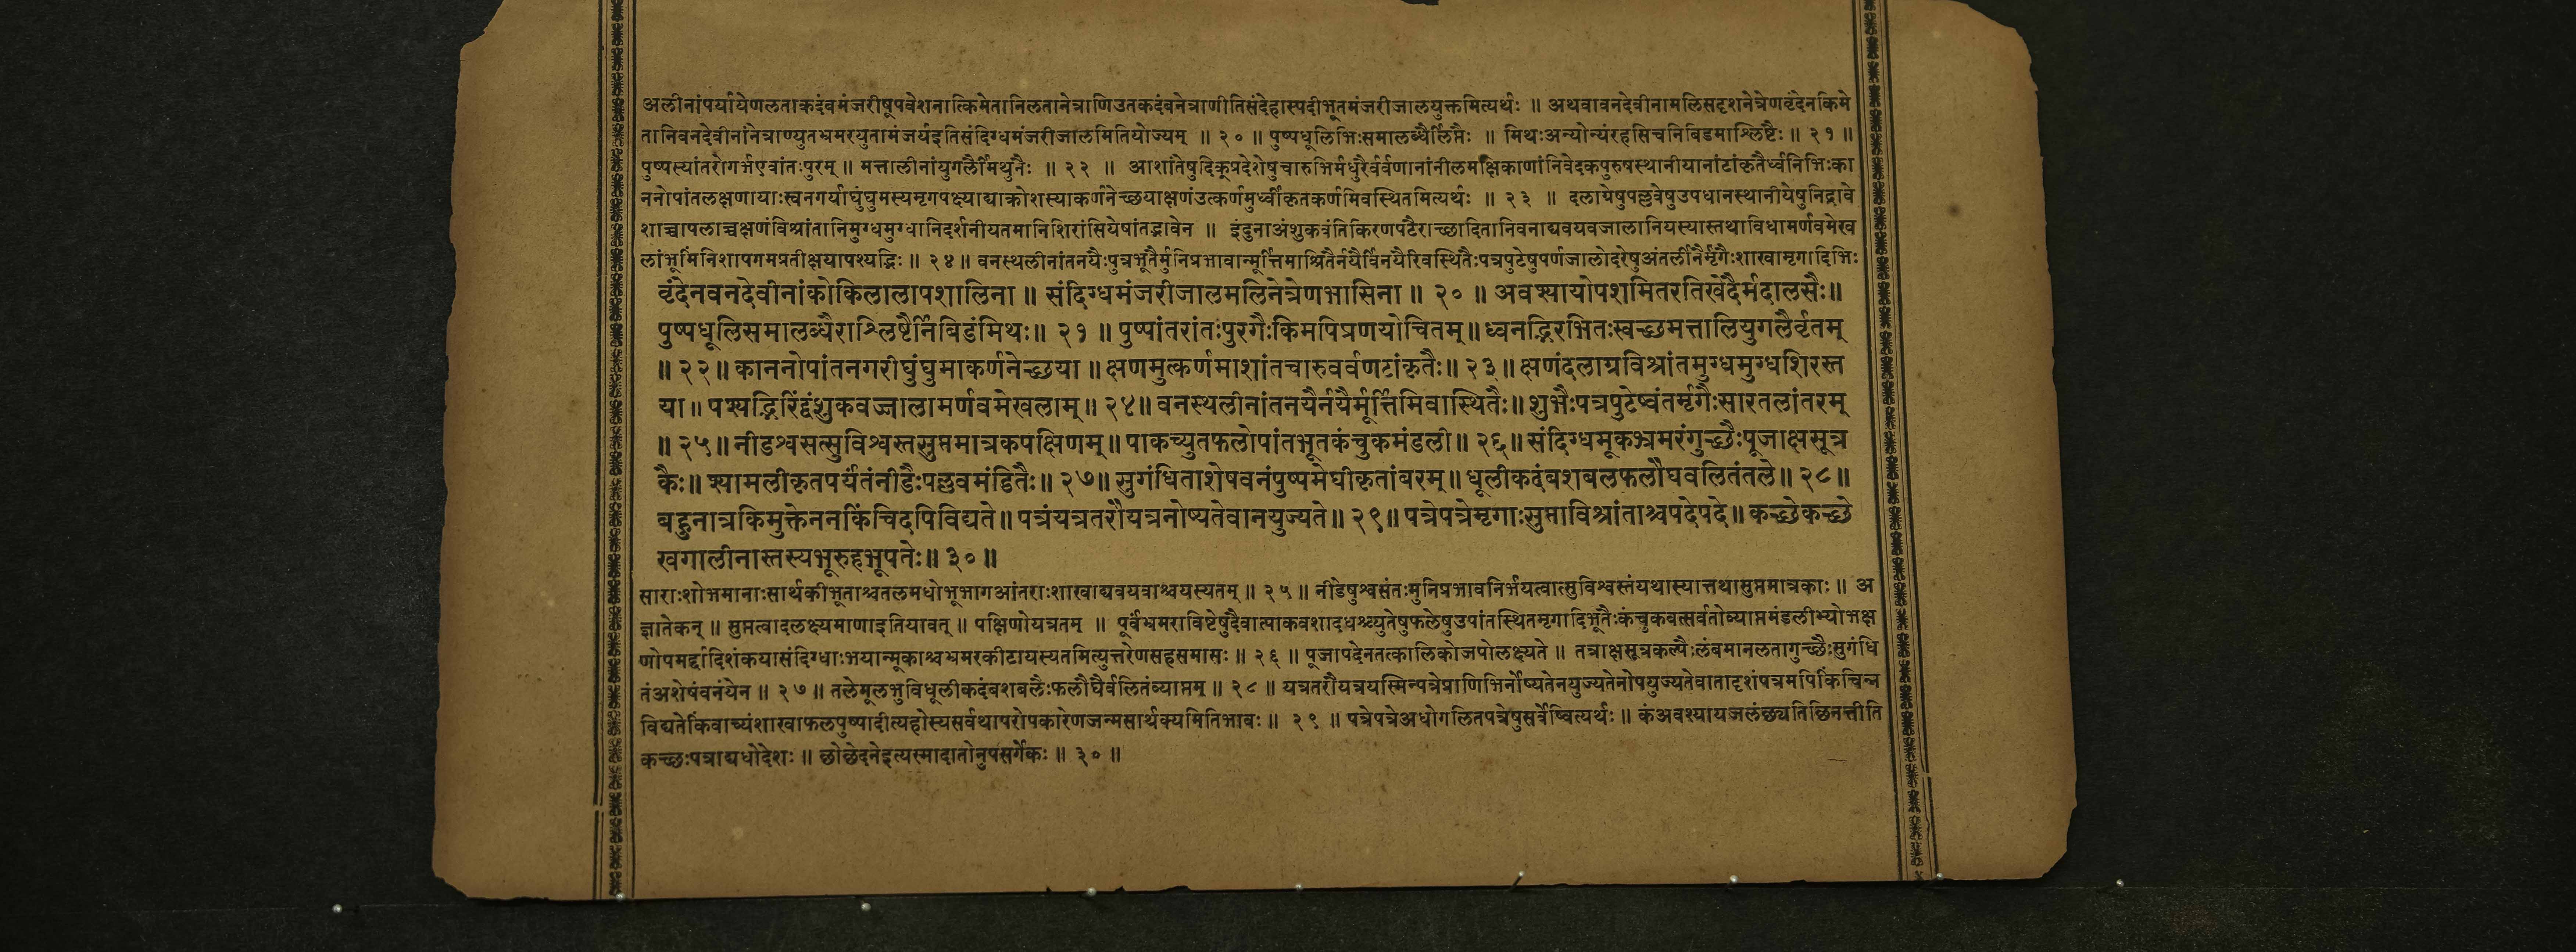 अलीनांपर्यायेणलताकदंबमंजरीषूपवेशनात्किमेतानिलतानेत्राणिउतकदंबनेत्राणीतिसंदेहास्पदीभूतमंजरीजालयुक्तमित्यर्थः ॥ अथवावनदेवीनामलिसदृशनेत्रेणवृंदेनकिमे
तानिवनदेवीनांनेत्राण्युतभ्रमरयुतामंजर्यइतिसंदिग्धमंजरीजालमितियोज्यम् ॥ २० ॥ पुष्पधूलिभिःसमालब्धैर्लिप्तैः ॥ मिथःअन्योन्यंरहसिचनिबिडमाश्लिष्टैः ॥ २१ ॥
पुष्पस्यांतरोगर्भएवांतःपुरम् ॥ मत्तालीनांयुगलैर्मिथुनैः ॥ २२ ॥ आशांतेषुदिक्प्रदेशेषुचारुभिर्मधुरैर्वर्वणानांनीलमक्षिकाणांनिवेदकपुरुषस्थानीयानांटांकृतैर्ध्वनिभिःका
ननोपांतलक्षणायाःस्वनगर्याघुंघुमस्यमृगपक्ष्याद्याक्रोशस्याकर्णनेच्छयाक्षणंउत्कर्णमुर्ध्वीकृतकर्णमिवस्थितमित्यर्थः ॥ २३ ॥ दलाग्रेषुपल्लवेषुउपधानस्थानीयेषुनिद्रावे
शाच्चापलाच्चक्षणंविश्रांतानिमुग्धमुग्धानिदर्शनीयतमानिशिरांसियेषांतद्भावेन ॥ इंदुनाअंशुकवंतिकिरणपटैराच्छादितानिवनाद्यवयवजालानियस्यास्तथाविधामर्णवमेख
लांभूमिंनिशापगमप्रतीक्षयापश्यद्भिः ॥ २४ ॥ वनस्थलीनांतनयैःपुत्रभूतैर्मुनिप्रभावान्मूर्त्तिमाश्रितैर्नयैर्विनयैरिवस्थितैःपत्रपुटेषुपर्णजालोदरेषुअंतर्लीनैर्मृगैःशाखामृगादिभिः
वृंदेनवनदेवीनांकोकिलालापशालिना ॥ संदिग्धमंजरीजालमलिनेत्रेणभासिना ॥ २० ॥ अवश्यायोपशमितरतिखेदैर्मदालसैः॥
पुष्पधूलिसमालब्धैराश्लिष्टैर्निबिडंमिथः॥ २१ ॥ पुष्पांतरांतःपुरगैःकिमपिप्रणयोचितम्॥ध्वनद्भिरभितःस्वच्छमत्तालियुगलैर्वृतम्
॥ २२॥ काननोपांतनगरीघुंघुमाकर्णनेच्छया ॥ क्षणमुत्कर्णमाशांतचारुवर्वणटांकृतैः॥ २३॥ क्षणंदलाग्रविश्रांतमुग्धमुग्धशिरस्त
या॥ पश्यद्भिरिंद्वंशुकवज्जालामर्णवमेखलाम्॥ २४॥ वनस्थलीनांतनयैर्नयैर्मूर्त्तिमिवास्थितैः॥शुभैःपत्रपुटेष्वंतर्मृगैःसारतलांतरम्
॥ २५॥ नीडश्वसत्सुविश्वस्तसुप्तमात्रकपक्षिणम्॥ पाकच्युतफलोपांतभूतकंचुकमंडली॥ २६॥ संदिग्धमूकभ्रमरंगुच्छैःपूजाक्षसूत्र
कैः॥ श्यामलीकृतपर्यंतंनीडैःपल्लवमंडितैः॥ २७॥ सुगंधिताशेषवनंपुष्पमेघीकृतांबरम्॥ धूलीकदंबशबलफलौघवलितंतले॥ २८॥
बहुनात्रकिमुक्तेननकिंचिदपिविद्यते॥ पत्रंयत्रतरौयत्रनोष्यतेवानयुज्यते॥ २९॥ पत्रेपत्रेमृगाःसुप्ताविश्रांताश्चपदेपदे॥ कच्छेकच्छे
खगालीनास्तस्यभूरुहभूपतेः॥ ३०॥
साराःशोभमानाःसार्थकीभूताश्चतलमधोभूभागआंतराःशाखाद्यवयवाश्चयस्यतम् ॥ २५ ॥ नीडेषुश्वसंतःमुनिप्रभावनिर्भयत्वात्सुविश्वस्तंयथास्यात्तथासुप्तमात्रकाः ॥ अ
ज्ञातेकन् ॥ सुप्तत्वादलक्ष्यमाणाइतियावत् ॥ पक्षिणोयत्रतम् ॥ पूर्वंभ्रमराविष्टेषुदैवात्पाकवशादधश्च्युतेषुफलेषुउपांतस्थितमृगादिभूतैःकंचुकवत्सर्वतोव्याप्तमंडलीभ्योभक्ष
णोपमर्द्दादिशंकयासंदिग्धाःभयान्मूकाश्चभ्रमरकीटायस्यतमित्युत्तरेणसहसमासः ॥ २६ ॥ पूजापदेनतत्कालिकोजपोलक्ष्यते ॥ तत्राक्षसूत्रकल्पैःलंबमानलतागुच्छैःसुगंधि
तंअशेषंवनंयेन ॥ २७ ॥ तलेमूलभुविधूलीकदंबशबलैःफलौघैर्वलितंव्याप्तम् ॥ २८ ॥ यत्रतरौयत्रयस्मिन्पत्रेप्राणिभिर्नोष्यतेनयुज्यतेनोपयुज्यतेवातादृशंपत्रमपिकिंचिन्न
विद्यतेकिंवाच्यंशाखाफलपुष्पादीत्यहोस्यसर्वथापरोपकारेणजन्मसार्थक्यमितिभावः ॥ २९ ॥ पत्रेपत्रेअधोगलितपत्रेषुसर्वेष्वित्यर्थः ॥ कंअवश्यायजलंछ्यतिछिनत्तीति
कच्छःपत्राद्यधोदेशः ॥ छोछेदनेइत्यस्मादातोनुपसर्गेकः ॥ ३० ॥